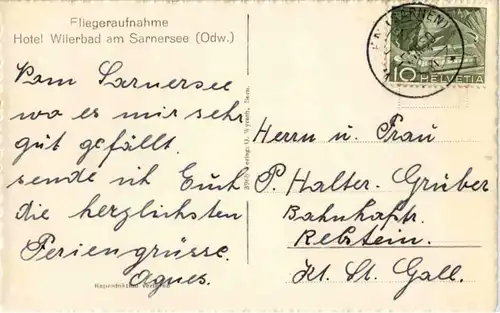 Fliegeraufnahme
Hotel Wilerbad am Sarnersee (Odw.)
Vom Sarnersee
wo es mir sehr
gut gefällt.
sende ich Euch
die herzlichsten
Feriengrüsse.
Agnes.
(SARNEN)
10 HELVETIA
Herrn u. Frau
P. Halter-Gruber
Bahnhofstr.
Rebstein.
Kt. St. Gall.